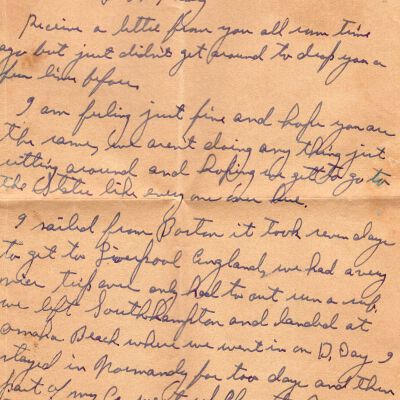 Receive a letter from you all some time
ago but just didn't get around to drop you a
few lines before.
I am feeling just fine and hope you are
the same, we aren't doing any thing just
sitting around and hoping we get to go to
the States like every one over here.
I sailed from Boston it took seven days
to get to Liverpool England, we had a very
nice trip over only had to out run a sub.
we left Southhampton and landed at
Omaha Beach where we went in on D. Day, I
stayed in Normandy for two days and then
part of my Co.